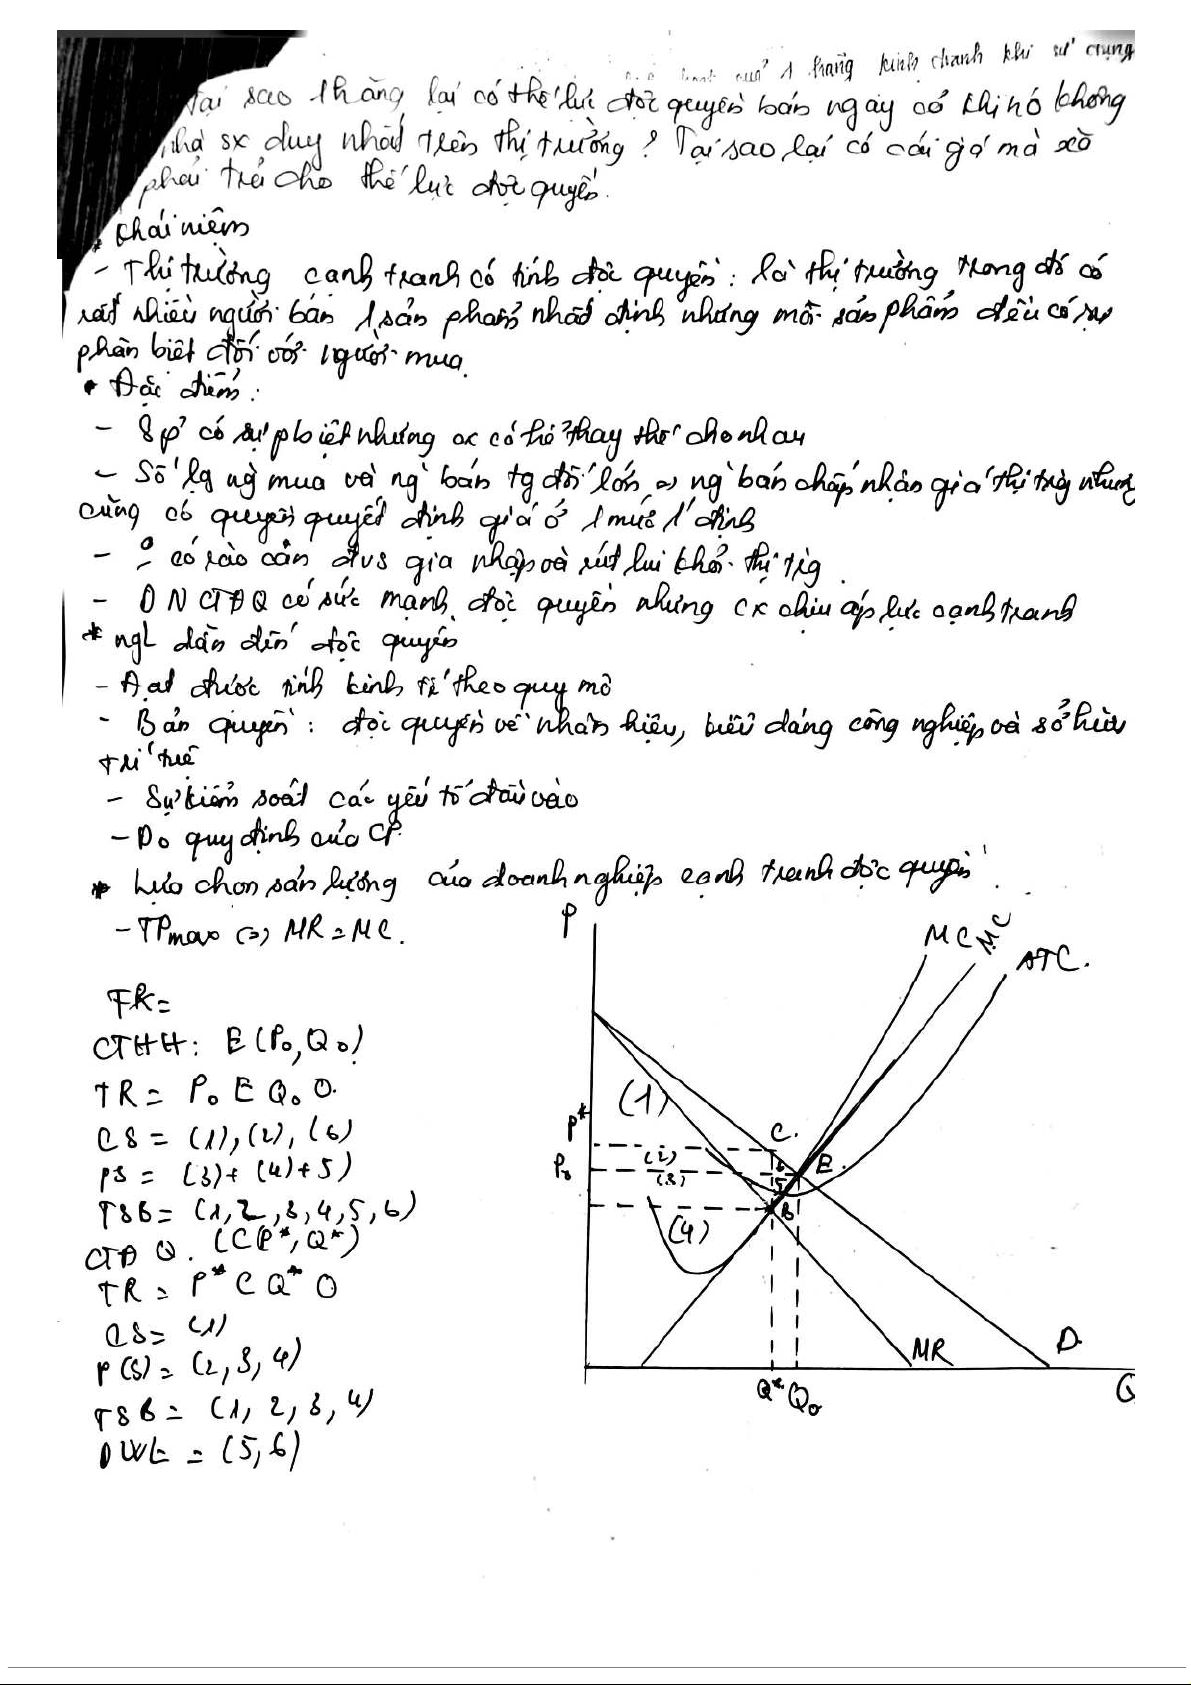 quả 1 hãng kinh doanh khi sử dụng
Tại sao 1 hãng lại có thế lực độc quyền bán ngay cả khi nó không
nhà sx duy nhất trên thị trường? Tại sao lại có cái giá mà xã
phải trả cho thế lực độc quyền.
* Khái niệm
- Thị trường cạnh tranh có tính độc quyền: là thị trường trong đó có
rất nhiều người bán 1 sản phẩm nhất định nhưng mỗi sản phẩm đều có sự
phân biệt đối với người mua.
• Đặc điểm:
- Sp có sự pbiệt nhưng có thể thay thế cho nhau
- Số lg ng mua và ng bán tg đối lớn, ng bán chấp nhận giá thị trg nhưng
cũng có quyền quyết định giá ở 1 mức 1 định
- có rào cản đvs gia nhập và rút lui khỏi thị trg.
- DN CTĐQ có sức mạnh độc quyền nhưng cx chịu áp lực cạnh tranh
* ng dẫn đến độc quyền
- Đạt được tính kinh tế theo quy mô
- Bản quyền: độc quyền về nhãn hiệu, kiểu dáng công nghiệp và sở hữu
trí tuệ
- Sự kiểm soát các yếu tố đầu vào
- Do quy định của CP
* Lựa chọn sản lượng của doanh nghiệp cạnh tranh độc quyền.
- TPmax (=) MR = MC.
P
MC MC
ATC.
CTHH: E(P₀, Q₀)
TR = P₀ E Q₀ O.
CS = (1), (2), (6)
PS = (3) + (4) + 5)
TSB = (1, 2, 3, 4, 5, 6)
CTĐQ. (C(P*, Q*)
TR = P* C Q* O
CS = (1)
P(S) = (2, 3, 4)
TSB = (1, 2, 3, 4)
DWL = (5, 6)
(1)
P*
C.
(2)
6
P₀
(3)
5
E.
B
(4)
MR
D
Q* Q₀
Q